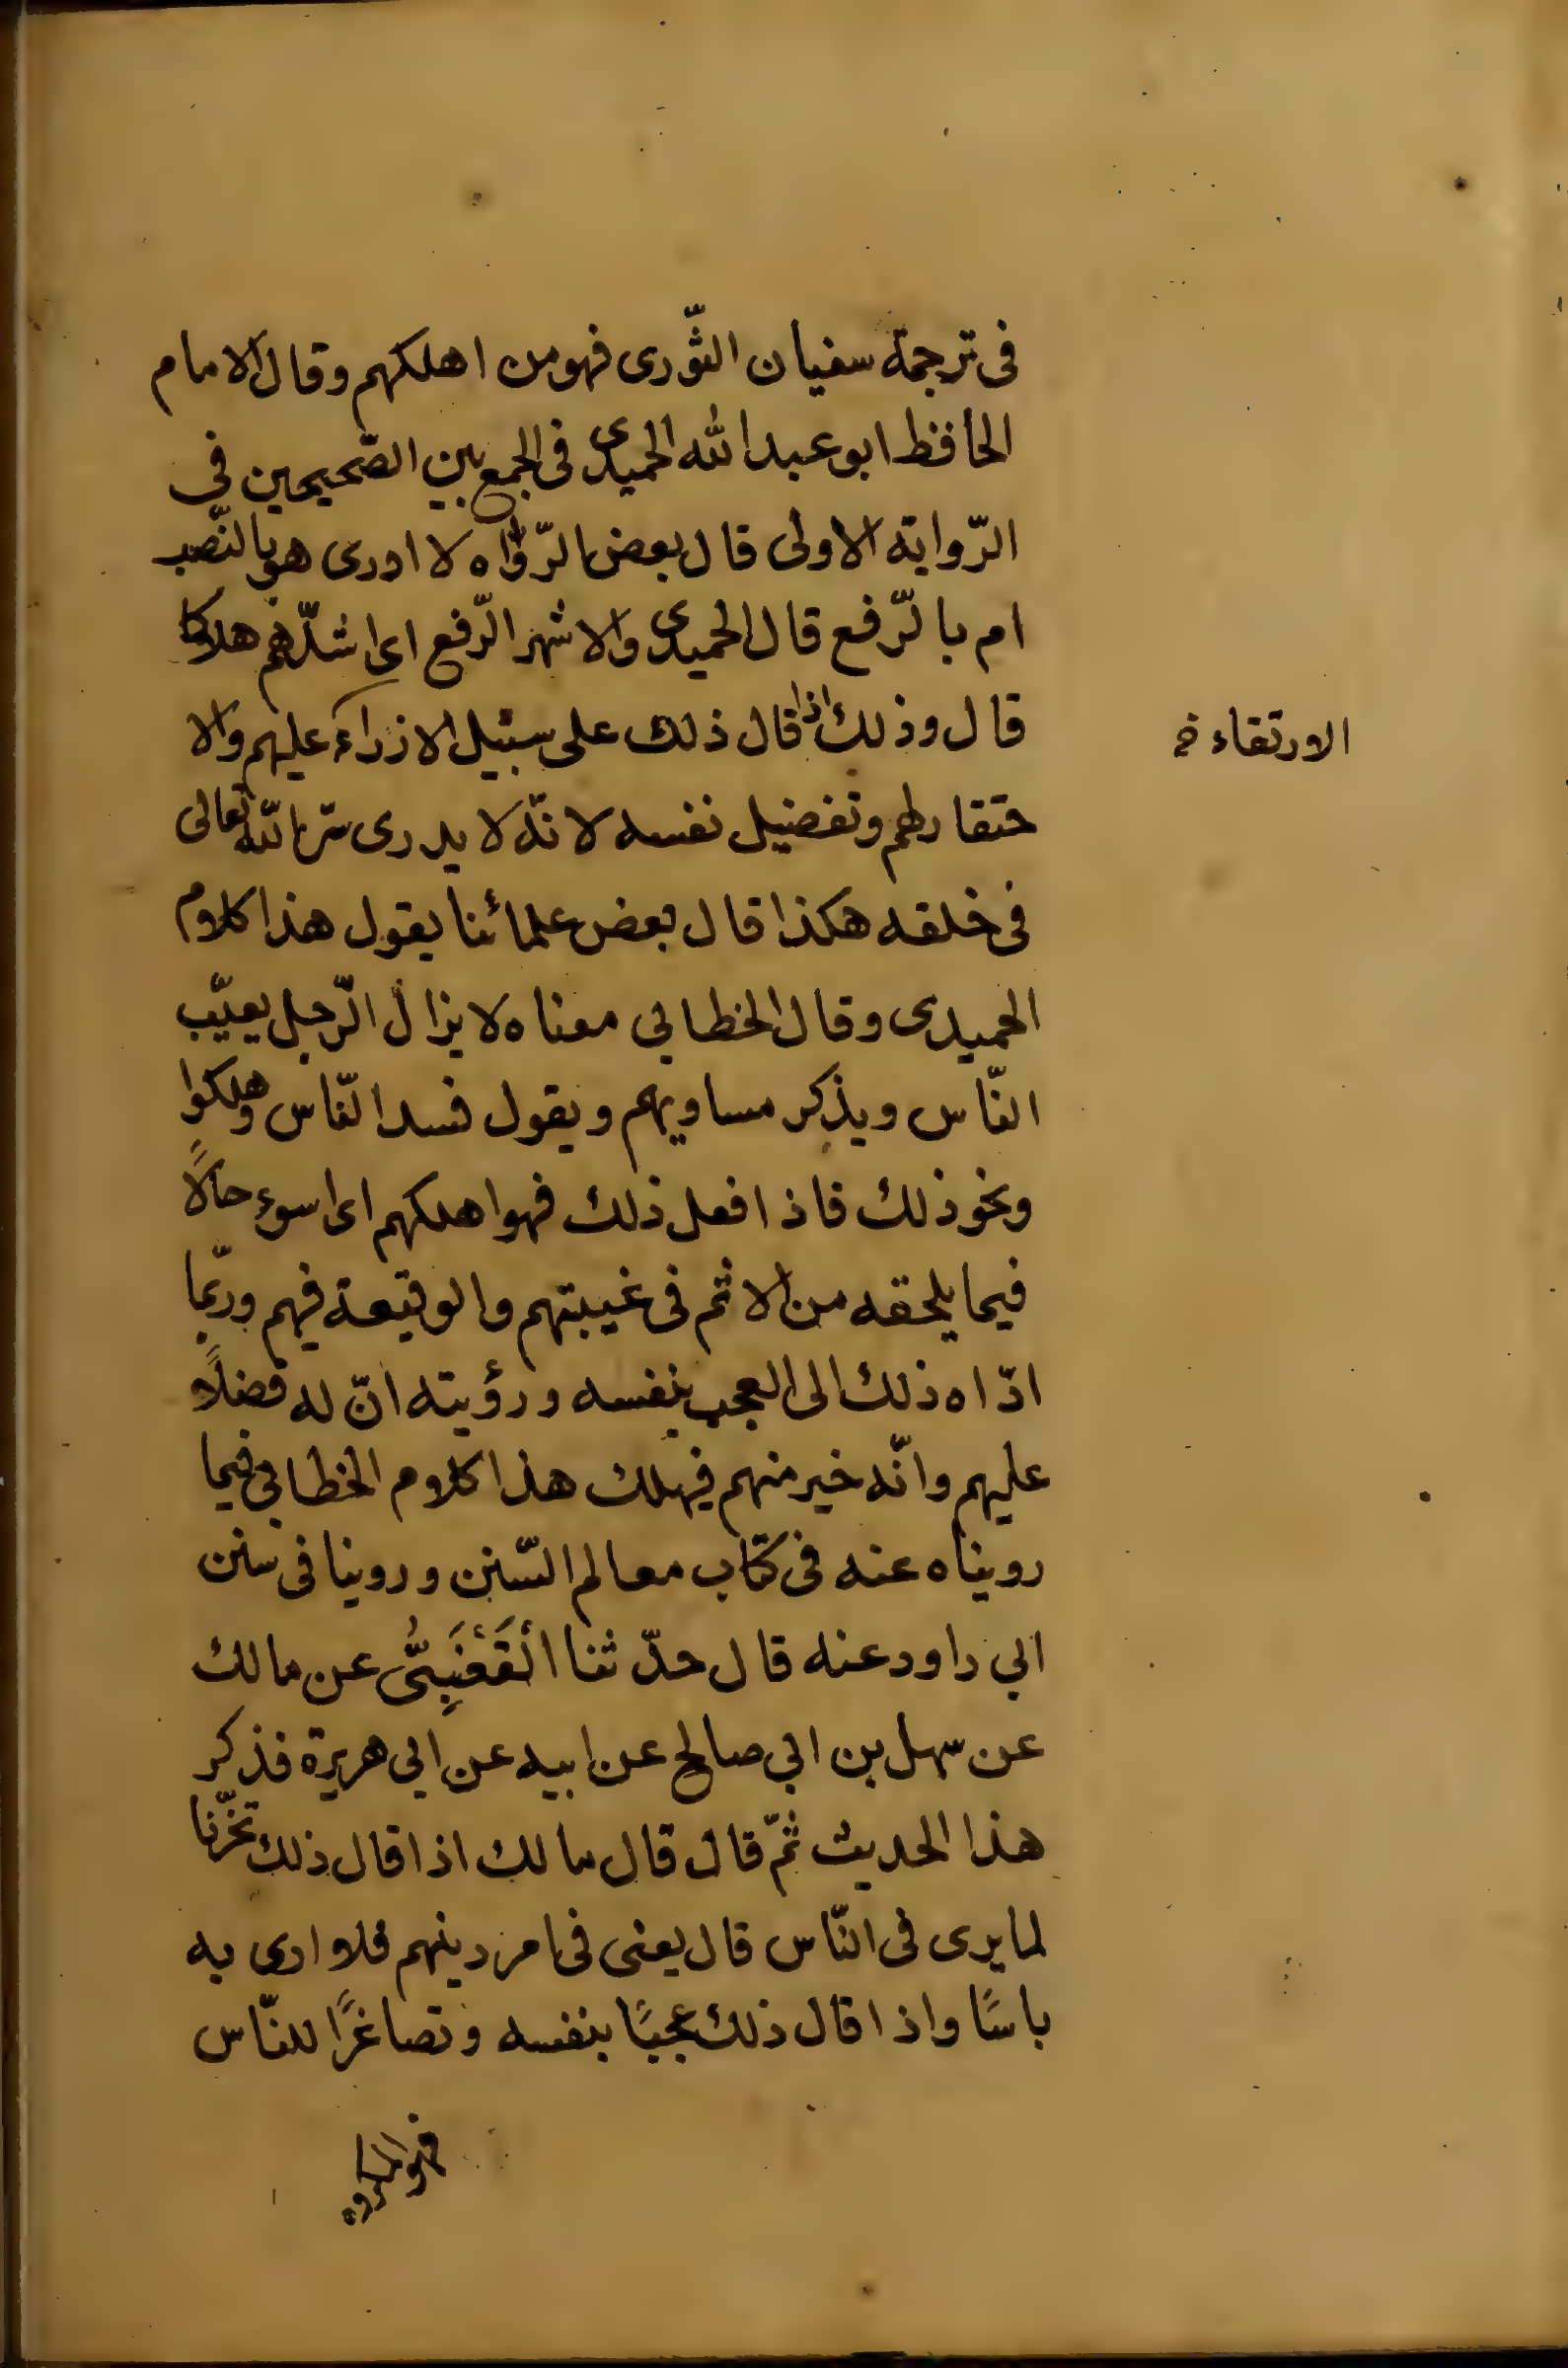 فى ترجمة سفيان الثّورى فهو من اهلكهم وقال الامام
الحافظ ابو عبدالله الحميدى فى الجمع بين الصّحيحين في
الرّواية الاولى قال بعض الرّواه لا ادرى هو بالنّصب
ام بالرّفع قال الحميدى والاشهر الرّفع اى اشدّهم هلاكا
قال وذلك اذا قال ذلك على سبيل الازراء عليهم والا
حتقار لهم وتفضيل نفسه لانّه لا يدرى سرّ الله تعالى
فى خلقه هكذا قال بعض علمائنا يقول هذا كلام
الحميدى وقال الخطابي معناه لا يزال الرّجل يعيّب
النّاس ويذكر مساويهم ويقول فسد النّاس وهلكوا
ونحو ذلك فاذا فعل ذلك فهو اهلكهم اى اسوء حالًا
فيما يلحقه من الاثم فى غيبتهم والوقيعة فيهم وربّما
ادّاه ذلك الى العجب بنفسه ورؤيته انّ له فضلًا
عليهم وانّه خير منهم فيهلك هذا كلام الخطابي فيما
رويناه عنه فى كتاب معالم السّنن وروينا فى سنن
ابي داود عنه قال حدّثنا الْقَعْنَبِىُّ عن مالك
عن سهل بن ابي صالح عن ابيه عن ابي هريرة فذكر
هذا الحديث ثمّ قال قال مالك اذا قال ذلك تحزّنا
لما يرى فى النّاس قال يعنى فى امر دينهم فلا ارى به
باسًا واذا قال ذلك عجبًا بنفسه وتصاغرًا للنّاس
فهو المكروه
الارتقاء